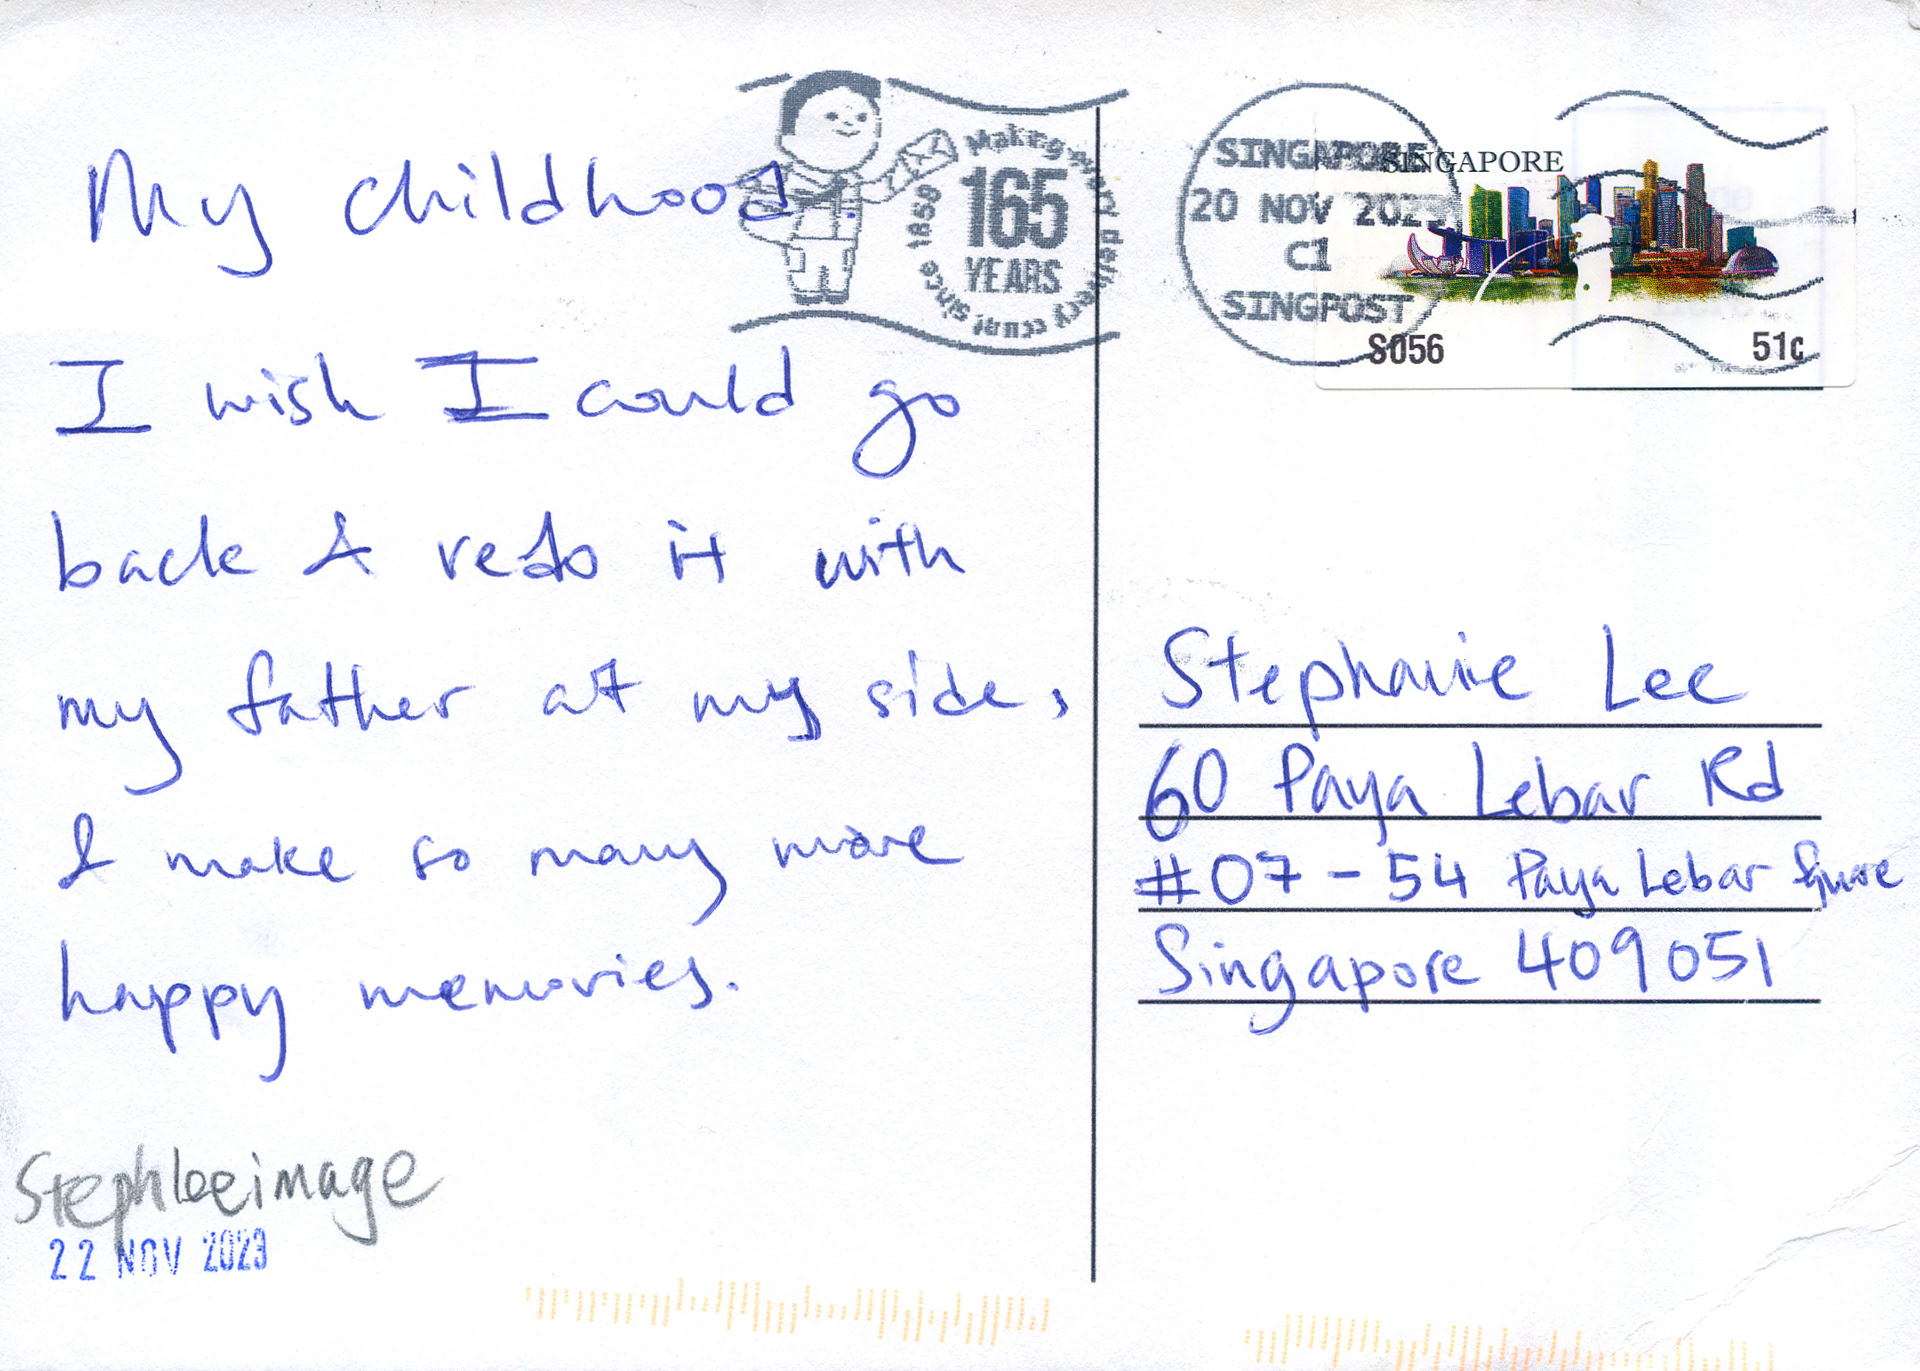 My childhood.
I wish I could go
back & redo it with
my father at my side,
& make so many more
happy memories.
Stephleeimage
22 NOV 2023
Makes every delivery count since 1859
165
YEARS
SINGAPORE
20 NOV 202
C1
SINGPOST
SINGAPORE
S056
51c
Stephanie Lee
60 Paya Lebar Rd
#07-54 Paya Lebar Square
Singapore 409051